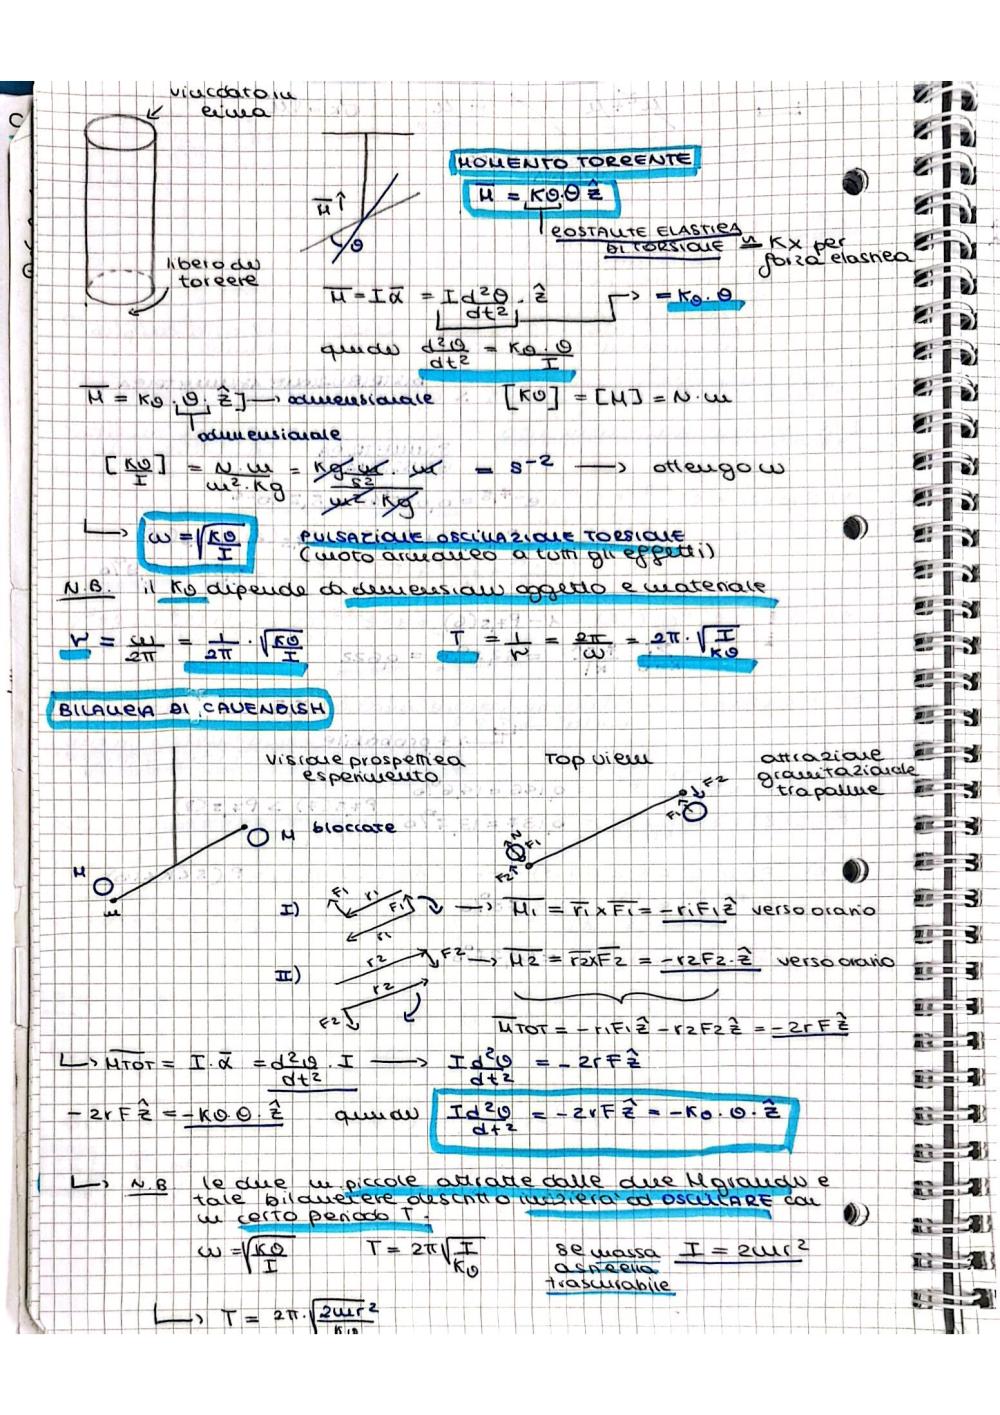 vincolato in
cima
MOMENTO TORCENTE
M̅ = Kθ·θ ẑ
M̅
θ
COSTANTE ELASTICA
DI TORSIONE ≃ Kx per
forza elastica
libero di
torcere
M̅ = I α̅ = I d²θ/dt² · ẑ → = Kθ·θ
quindi d²θ/dt² = Kθ·θ/I
M̅ = Kθ·θ·ẑ] → adimensionale [Kθ] = [M] = N·m
adimensionale
[Kθ/I] = N·m/m²·Kg = Kg·m/s² · m / m²·Kg = s⁻² → ottengo ω
↳ ω = √(Kθ/I) PULSAZIONE OSCILLAZIONE TORSIONE
(moto armonico a tutti gli effetti)
N.B. il Kθ dipende da dimensioni oggetto e materiale
ν = ω/2π = 1/2π · √(Kθ/I) T = 1/ν = 2π/ω = 2π·√(I/Kθ)
BILANCIA DI CAVENDISH
visione prospettica
esperimento
TOP VIEW
attrazione
gravitazionale
tra palline
M bloccate
M
m
F2
F1
F1
F2
I) F1 r1 F1 r1 → M̅1 = r̅1 x F̅1 = -r1F1ẑ verso orario
II) r2 F2 r2 F2 → M̅2 = r̅2xF̅2 = -r2F2·ẑ verso orario
M̅TOT = -r1F1ẑ - r2F2ẑ = -2rFẑ
↳ M̅TOT = I·α̅ = d²θ/dt² · I → I d²θ/dt² = -2rFẑ
-2rFẑ = -Kθ·θ·ẑ quindi I d²θ/dt² = -2rFẑ = -Kθ·θ·ẑ
↳ N.B le due m piccole attratte dalle due M grandi e
tale bilanciere descritto inizierà ad OSCILLARE con
un certo periodo T.
ω = √(Kθ/I) T = 2π√(I/Kθ) se massa I = 2mr²
asticella
trascurabile
↳ T = 2π·√(2mr²/Kθ)